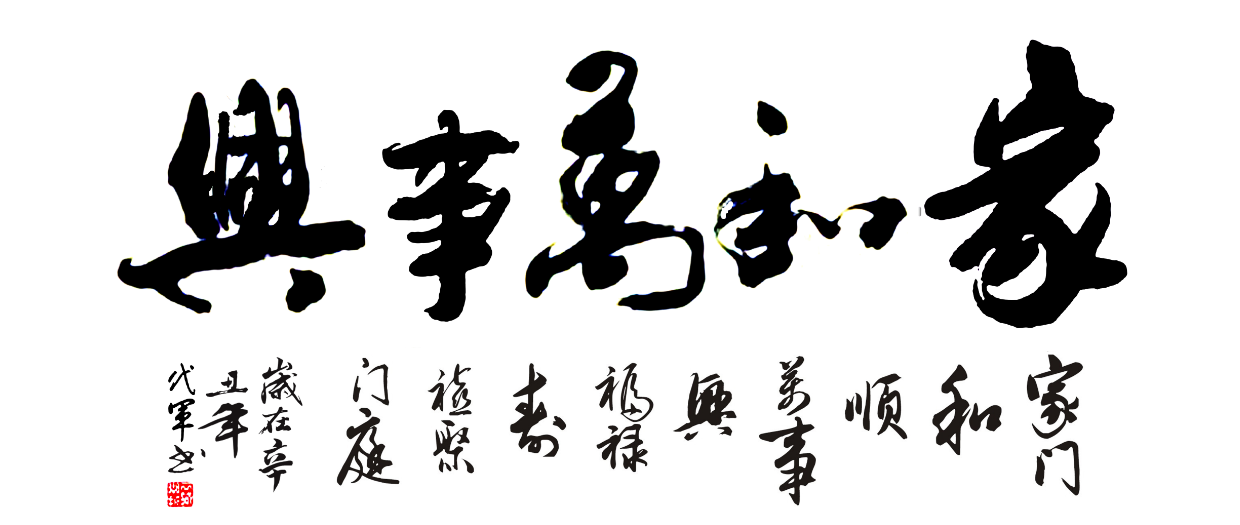 家和萬事興
家门
和
順
萬事
興
福禄
寿
禧聚
门庭
歲在辛
丑年
代軍书